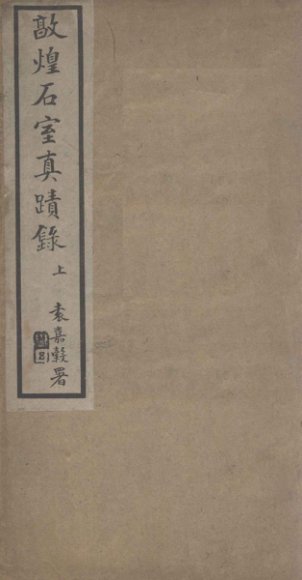 敦煌石室真蹟錄
上
袁嘉穀署